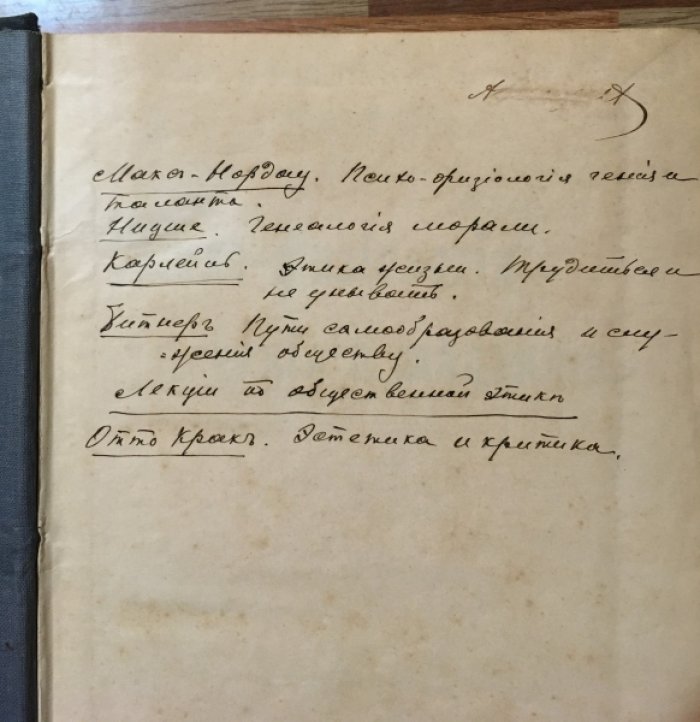 Макс-Нордау. Психо-физіологія генія и
таланта.
Ницше. Генеалогія морали.
Карлейль. Этика жизни. Трудиться и
не унывать.
Битнеръ Пути самообразованія и слу-
=женія обществу.
Лекціи по общественной этикѣ
Отто Кракъ. Эстетика и критика.